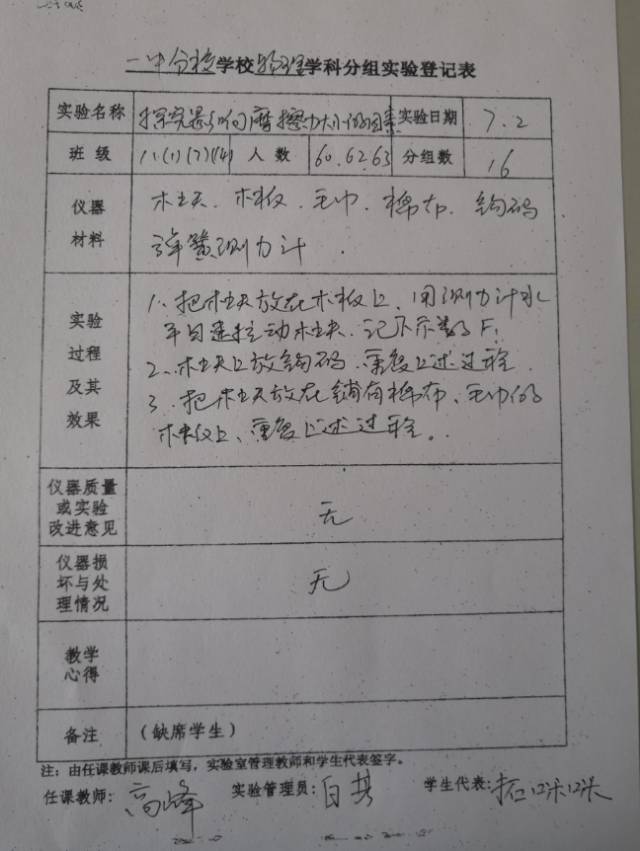 一中分校学校物理学科分组实验登记表
实验名称 探究影响摩擦力大小的因素 实验日期 7.2
班级 人数 60.62.63 分组数 16
仪器材料 木块、木板、毛巾、棉布、钩码
弹簧测力计.
实验过程及其效果
1、把木块放在木板上,用测力计水
平匀速拉动木块.记下示数F1
2、木块上放钩码,重复上述过程.
3、把木块放在铺有棉布、毛巾的
木板上、重复上述过程。
仪器质量
或实验
改进意见 无
仪器损
坏与处
理情况 无
教学
心得
备注 (缺席学生)
注:由任课教师课后填写,实验室管理教师和学生代表签字。
任课教师:高峰 实验管理员:白 学生代表: